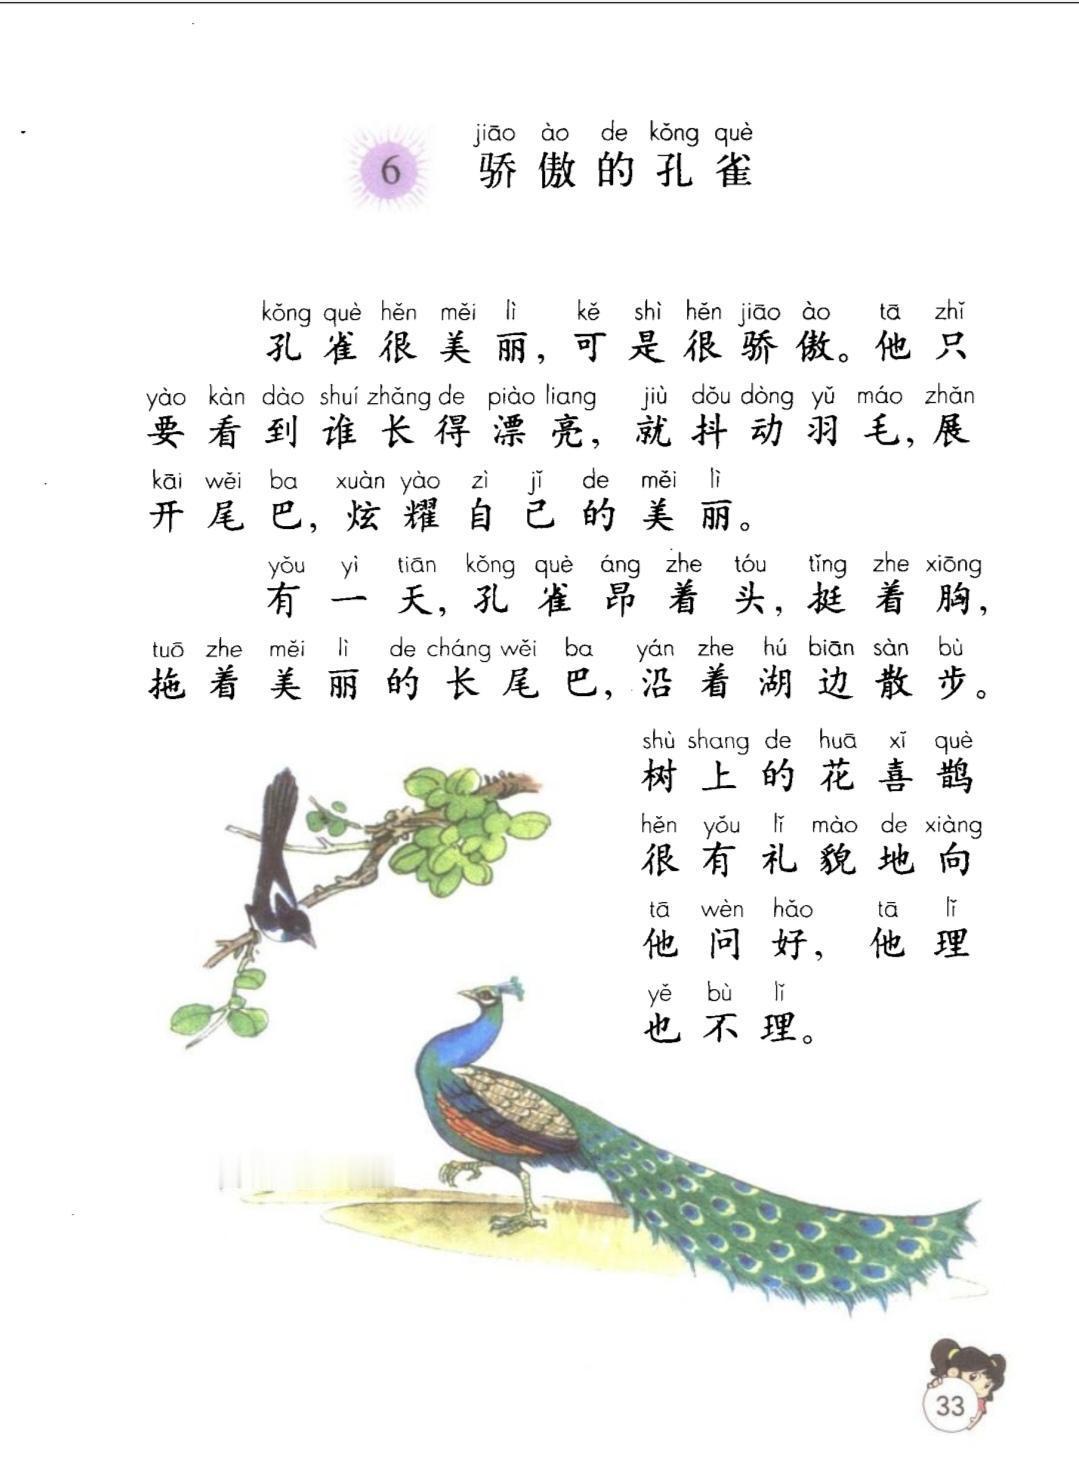 jiāo ào de kǒng què
6 骄傲的孔雀
kǒng què hěn měi lì kě shì hěn jiāo ào tā zhǐ
孔雀很美丽，可是很骄傲。他只
yào kàn dào shuí zhǎng de piào liang jiù dǒu dòng yǔ máo zhǎn
要看到谁长得漂亮，就抖动羽毛，展
kāi wěi ba xuàn yào zì jǐ de měi lì
开尾巴，炫耀自己的美丽。
yǒu yì tiān kǒng què áng zhe tóu tǐng zhe xiōng
有一天，孔雀昂着头，挺着胸，
tuō zhe měi lì de cháng wěi ba yán zhe hú biān sàn bù
拖着美丽的长尾巴，沿着湖边散步。
shù shang de huā xǐ què
树上的花喜鹊
hěn yǒu lǐ mào de xiàng
很有礼貌地向
tā wèn hǎo tā lǐ
他问好，他理
yě bù lǐ
也不理。
33